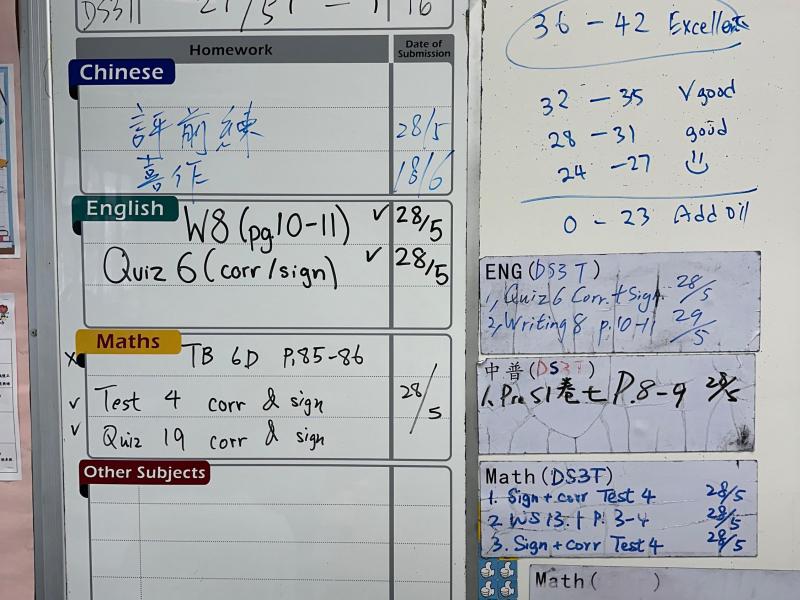 Homework
Date of Submission
Chinese
評前練 28/5
喜作 18/6
English
W8 (pg10-11) ✓ 28/5
Quiz 6 (corr/sign) ✓ 28/5
Maths
x TB 6D P.85-86
✓ Test 4 corr & sign 28/5
✓ Quiz 19 corr & sign
Other Subjects
36 - 42 Excellent
32 - 35 V good
28 - 31 good
24 - 27
0 - 23 Add oil
ENG (DS3T)
1, Quiz 6 Corr. + Sign 28/5
2, Writing 8 p.10-11 29/5
中普 (DS3T)
1. Pre S1 卷七 P.8-9 28/5
Math (DS3T)
1. Sign + corr Test 4 28/5
2. WS 13.1 P. 3-4 28/5
3. Sign + corr Test 4 28/5
Math ( )